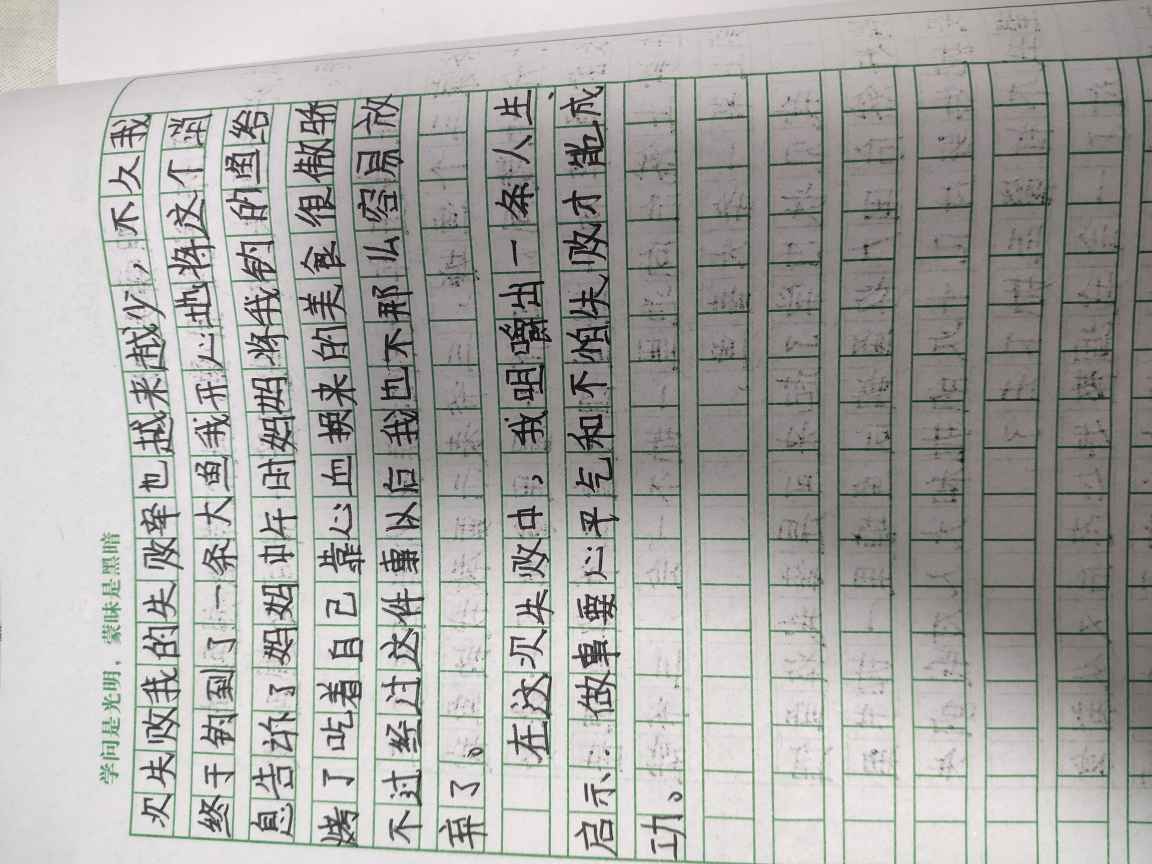 学问是光明，蒙昧是黑暗
次失败我的失败率也越来越少，不久我
终于钓到了一条大鱼我开心地将这个消
息告诉了妈妈中午时妈妈将我钓的鱼给
烤了吃着自己靠心血换来的美食很傲骄
不过经过这件事以后我也不那么容易放
弃了。
在这次失败中，我咀嚼出一条人生
启示：做事要心平气和不怕失败才能成
功。